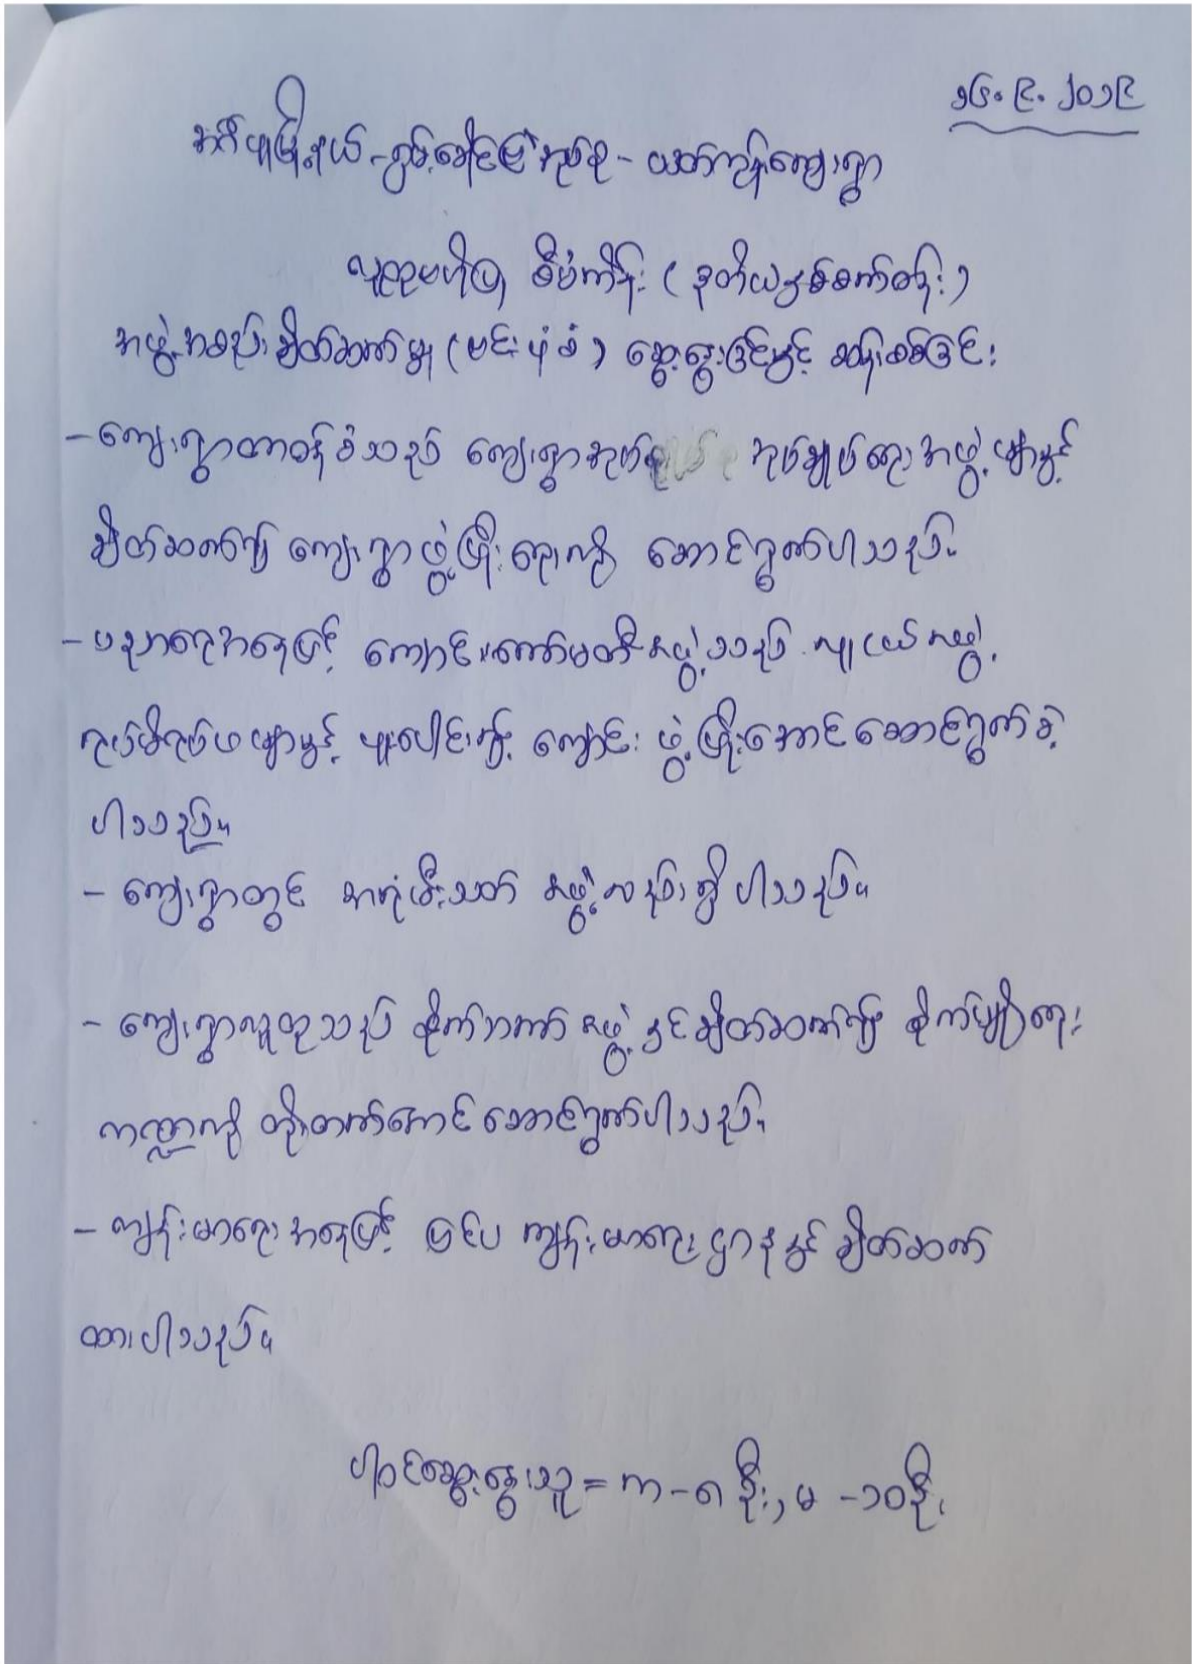 ၁၆.၉.၂၀၁၉
အင်္ဂပူမြို့နယ် - ရွှမ်းခေါင်မြဲအုပ်စု - ယတ်ကုန်းကျေးရွာ
လူထုဗဟိုပြု စီမံကိန်း (ဒုတိယနှစ်စက်ဝန်း)
အဖွဲ့အစည်းချိတ်ဆက်မှု (ဗင်းပုံစံ) ဆွေးနွေးခြင်းနှင့် ဆန်းစစ်ခြင်း
- ကျေးရွာတာဝန်ခံသည် ကျေးရွာအုပ်စု အုပ်ချုပ်ရေးအဖွဲ့များနှင့်
ချိတ်ဆက်၍ ကျေးရွာဖွံ့ဖြိုးရေးကို ဆောင်ရွက်ပါသည်။
- ပညာရေးအနေဖြင့် ကျောင်းကော်မတီအဖွဲ့သည် လူငယ်အဖွဲ့
ရပ်မိရပ်ဖများနှင့် ပူးပေါင်း၍ ကျောင်း ဖွံ့ဖြိုးအောင်ဆောင်ရွက်ခဲ့
ပါသည်။
- ကျေးရွာတွင် အရံမီးသတ် အဖွဲ့လည်းရှိပါသည်။
- ကျေးရွာလူထုသည် စိုက်ဘက်အဖွဲ့နှင့်ချိတ်ဆက်၍ စိုက်ပျိုးရေး
ကဏ္ဍကို တိုးတက်အောင်ဆောင်ရွက်ပါသည်။
- ကျန်းမာရေးအနေဖြင့် မြင်ပ ကျန်းမာရေးဌာနနှင့် ချိတ်ဆက်
ထားပါသည်။
ပါဝင်ဆွေးနွေးသူ = ကာ - ၈ ဦး, မ - ၁၀ဦး